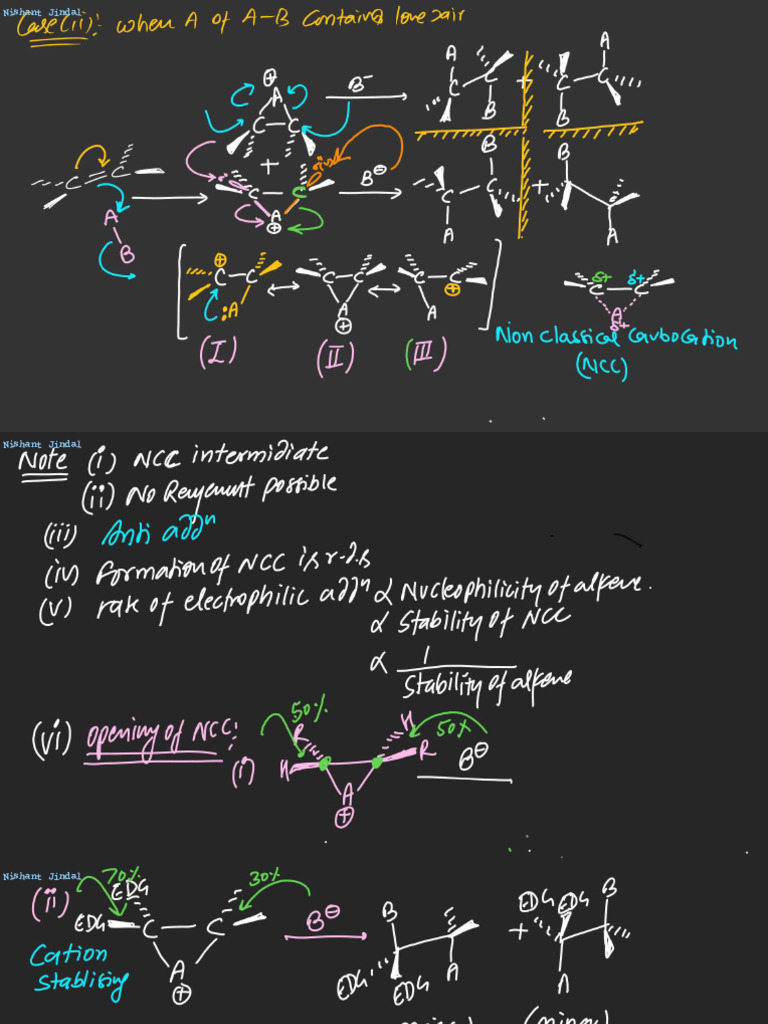 Nishant Jindal
Case (ii): when A of A-B contains lone pair
⊕
A
C C
B⁻
A
C C
B
+
A
C C
B
+
C = C
C C
A
⊕
B⊖
B
C C
A
+
B
A
A
B
⊕
C C
:A
↔
C C
A
⊕
↔
C C
⊕
A
(I) (II) (III)
δ+ δ+
C C
A
δ+
Non classical carbocation
(NCC)
Nishant Jindal
Note (i) NCC intermidiate
(ii) No possible
(iii) Anti addn
(iv) formation of NCC is r.d.s
(v) rate of electrophilic addn ∝ Nucleophilicity of alkene.
∝ Stability of NCC
∝ 1
Stability of alkene
(vi) opening of NCC:
(i)
50%
R
H
H
R
50%
B⊖
A
⊕
Nishant Jindal
(ii)
70%
EDG
EDG
C C
30%
A
⊕
B⊖
Cation
Stablising
B
EDG
EDG
A
+
EDG EDG
B
A